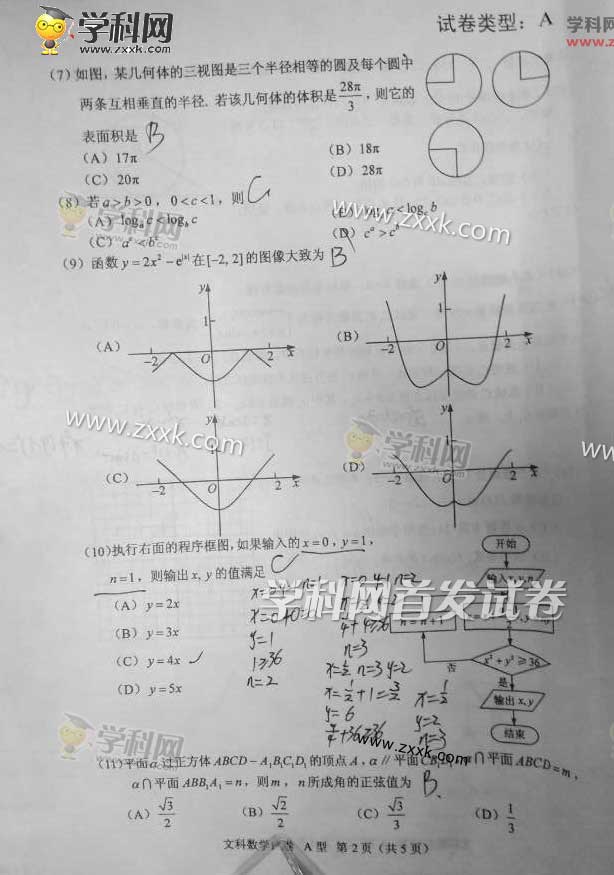 学科网
www.zxxk.com
试卷类型：A
(7) 如图，某几何体的三视图是三个半径相等的圆及每个圆中
两条互相垂直的半径. 若该几何体的体积是 28π/3 ，则它的
表面积是 B
(A) 17π (B) 18π
(C) 20π (D) 28π
(8) 若 a>b>0，0<c<1，则 C
(A) logₐc<log_b c
(C) aᶜ<bᶜ (D) cᵃ>cᵇ
www.zxxk.com
学科网
(9) 函数 y=2x²−e^|x| 在[-2, 2]的图像大致为 B
(A) y 1 -2 O 2 x
(B) y 1 -2 O 2 x
www.zxxk.com
学科网
(C) y 1 -2 O 2 x
(D) y 1 -2 O 2 x
(10)执行右面的程序框图, 如果输入的 x=0，y=1，
n=1，则输出 x, y 的值满足 C
(A) y=2x
(B) y=3x
(C) y=4x ✓
(D) y=5x
学科网首发试卷
开始
n=n+1
否
x²+y²≥36
是
输出 x, y
结束
y=1
1≥36
n=2
n=3
x=1/2 n=3 y=2
x=1/2+1=3/2
y=6
x=1/2
y=2
n=3
学科网
www.zxxk.com
www.zxxk.com
(11)平面α过正方体 ABCD−A₁B₁C₁D₁ 的顶点 A，α // 平面 CB₁D₁，α∩平面 ABCD=m，
α∩平面 ABB₁A₁=n，则 m，n 所成角的正弦值为 B
(A) √3/2 (B) √2/2 (C) √3/3 (D) 1/3
文科数学试卷 A 型 第 2 页（共 5 页）